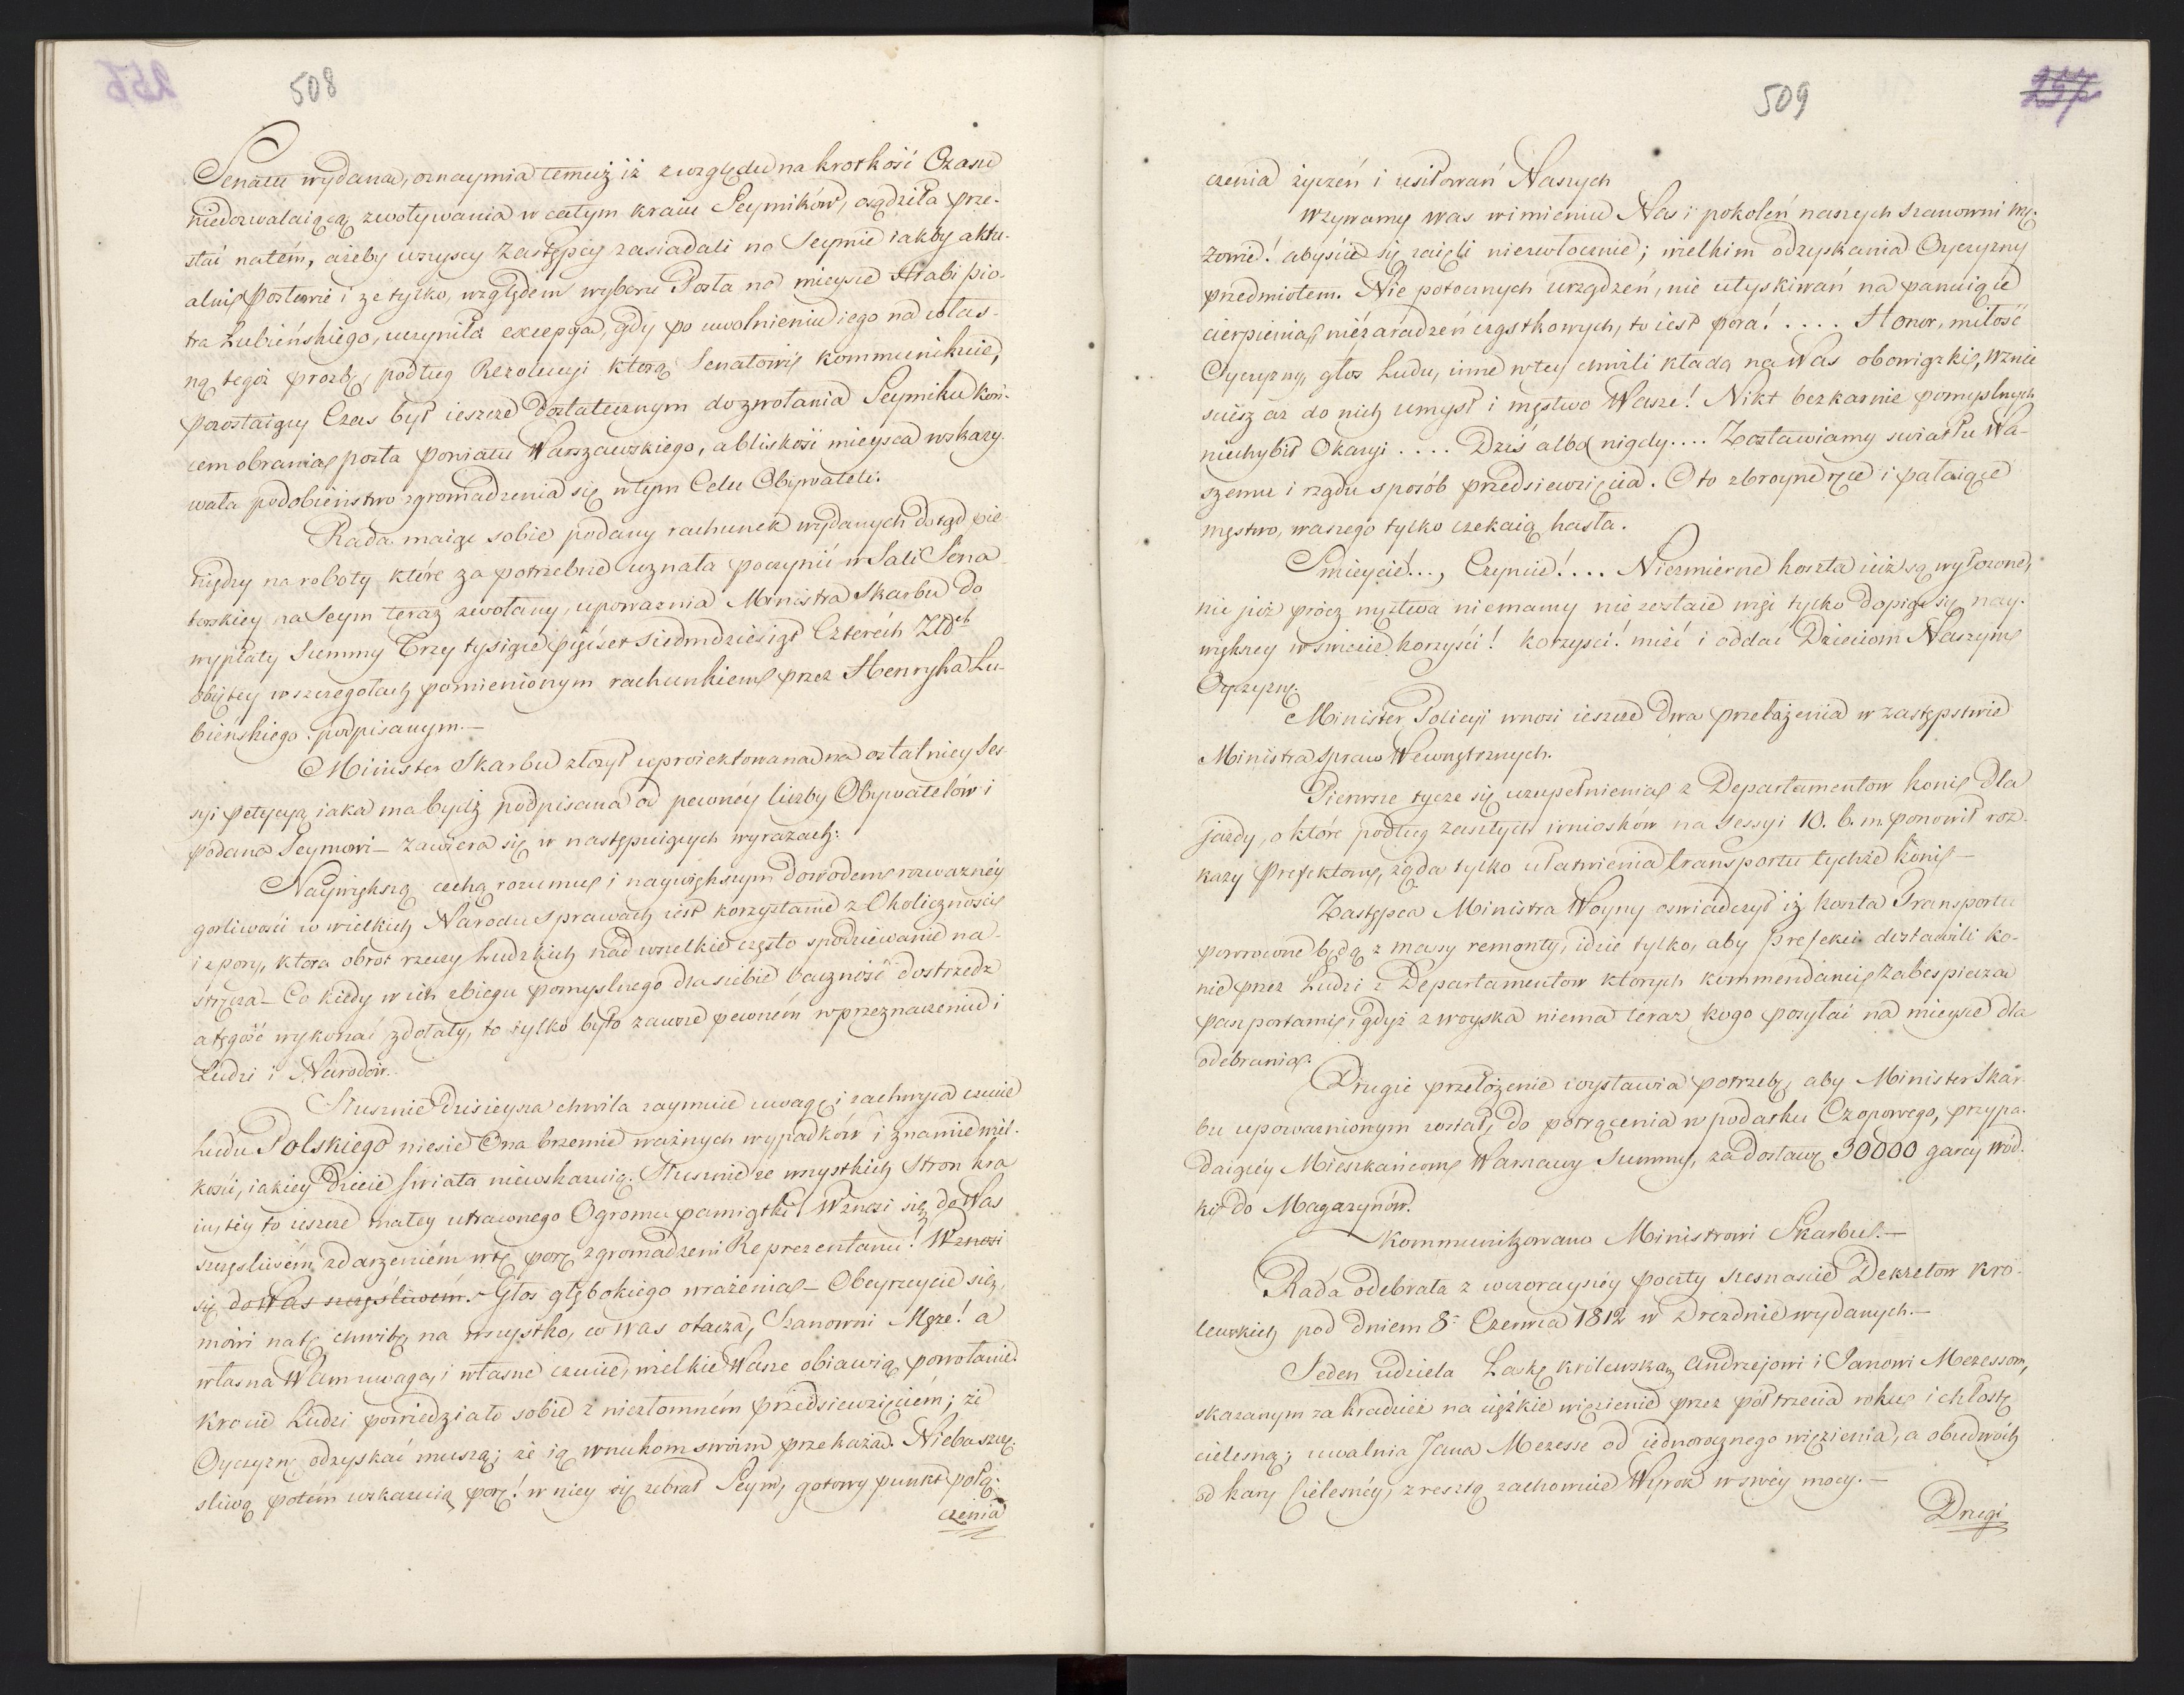 508
Senatu wydana, oznaymia temuż iż z względu na krotkość Czasu
niedozwalaiącą zwoływania w całym kraiu Seymików, osądziła prze-
stać natém, ażeby wszyscy Zastępcy zasiadali na Seymie iakby aktu-
alni Posłowie i że tylko, względem wyboru Posła na mieysce Hrabi Pio-
tra Łubieńskiego, uczyniła excepcyą, gdy po uwolnieniu iego na włas-
ną tegoż prozbę, podług Rezolucyi którą Senatowi kommunikuie,
pozostaiący Czas był ieszcze dostatecznym do zwołania Seymiku koń-
cem obrania posła powiatu Warszawskiego, a bliskość mieysca wskazy-
wała podobieństwo zgromadzenia się w tym Celu Obywateli.
Rada maiąc sobie podany rachunek wydanych dotąd pie-
niędzy na roboty, które za potrzebne uznała poczynić w Sali Sena-
torskiey na Seym teraz zwołany, upoważnia Ministra Skarbu do
wypłaty Summy Trzy tysiące pięćset siedmdziesiąt Czterech Złotych
obiętey w szczegołach pomienionym rachunkiem przez Henryka Łu-
bieńskiego podpisanym.—
Minister Skarbu złożył uproiektowaną na ostatniey Ses-
syi petycyą iaka ma bydź podpisana od pewnéy liczby Obywatelów i
podana Seymowi — zawiera się w następuiących wyrazach:
Naywiększą cechą rozumu i naywiększym dowodem rozwaznéy
gorliwości w wielkich Narodu sprawach iest korzystanie z Okoliczności
i z pory, która obrot rzeczy ludzkich nad wszelkie często spodziewanie na-
stręcza — Co kiedy w ich zbiegu pomyślnego dla siebie baczność dostrzedz
a tęgość wykonać zdołały, to tylko było zawsze pewném w przeznaczeniu i
Ludzi i Narodów.
Słusznie dzisieysza chwila zaymuie uwagę i zachwyca czucie
Ludu Polskiego niesie Ona brzemie ważnych wypadków i znamie wiel-
kości, iakiey Dzieie świata niewskazuią. Słusznie ze wszystkich Stron kra-
iu, téy to ieszcze małey utraconego Ogromu pamiątki! Wznosi się do Was
szczęśliwém zdarzeniém w tę porę zgromadzeni Reprezentanci! Wznosi
się do Was szczęśliwém Głos głębokiego wrażenia — Obeyrzycie się,
mówi na tę chwilę na wszystko, co was otacza, Szanowni Męże! a
własna Wam uwaga, i własne czucie, wielkie Wasze obiawią powołanie.
Krocie Ludzi powiedziało sobie z niezłomném przedsięwzięciem; że
Oyczyznę odzyskać muszą; że ią wnukom swoim przekażą. Nieba szczę-
śliwą potém wskazuią porę! w niey się zebrał Seym, gotowy punkt połą-
czenia
509
257
czenia życzeń i usiłowań Naszych
Wzywamy was w imieniu Nas i pokoleń naszych szanowni mę-
żowie! abyście się zaięli niezwłocznie; wielkim odzyskania Oyczyzny
przedmiotem. Nie potocznych urządzeń, nie utyskiwań na panuiące
cierpienia, nié zaradzeń cząstkowych, to iest pora! .... Honor, miłość
Oyczyzny, głos Ludu, inne w tey chwili kładą na Was obowiązki, wznie-
siesz aż do nich umysł i męstwo Wasze! Nikt bezkarnie pomyslnych
niechybił Okazyi .... Dziś albo nigdy .... Zostawiamy swiatłu Wa-
szemu i rządu sposób przedsiewzięcia. Oto zbroyne ręce i pałaiące
męstwo, waszego tylko czekaią hasła.
Smieycie!..., Czyncie!.... Niezmierne koszta iuż są wyłożone,
nic już prócz męztwa niemamy nie zostaie więc tylko dopiąć się nay-
większey w świecie korzyści! Korzyści! mieć i oddać Dzieciom Naszym
Oyczyznę.
Minister Policyi wnosi ieszcze dwa przełożenia w zastępstwie
Ministra Spraw Wewnętrznych.
Pierwsze tycze się uzupełnienia z Departamentow koni dla
jazdy, o które podług zaszłych wniosków na sessyi 10. b. m. ponowił roz-
kazy Prefektom, żąda tylko ułatwienia transportu tychże koni —
Zastępca Ministra Woyny oswiadczył iż koszta Transportu
powrócone będą z massy remonty, idzie tylko, aby Prefekci dostawili ko-
nie przez Ludzi z Departamentow ktorych kommendanci zabespieczą
paszportami, gdyż z woyska niema teraz kogo posyłać na mieysce dla
odebrania.
Drugie przełożenie wystawia potrzebę, aby Minister Skar-
bu upoważnionym został, do potrącenia w podatku Czopowego, przypa-
daiącéy Mieszkańcom Warszawy Summy, za dostawę 30000 garcy wód-
ki do Magazynów.
Kommunikowano Ministrowi Skarbu.—
Rada odebrała z wczorayszéy poczty szesnaście Dekretow Kró-
lewskich pod dniem 8. Czerwca 1812 w Dreznie wydanych.—
Jeden udziela Łaskę królewską Andrzejowi i Janowi Mezessom,
skazanym za kradzież na ciężkie więzienie przez półtrzecia roku i chłostę
cielesną; uwalnia Jana Mezesse od iednorocznego więzienia, a obudwóch
od kary Cielesnéy, z resztą zachowuie Wyrok w swéy mocy.—
Drugi